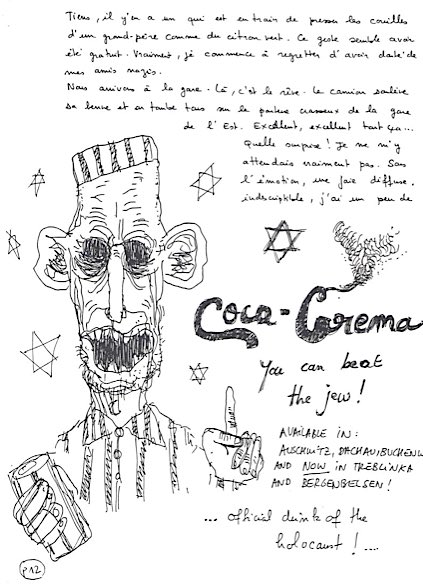 Tiens, il y en a un qui est en train de presser les couilles
d'un grand-père comme du citron vert. Ce geste semble avoir
été gratuit. Vraiment, je commence à regretter d'avoir de
mes amis nazis.
Nous arrivons à la gare. Là, c'est le rêve. Le camion soulève
sa benne et on tombe tous sur le parterre crasseux de la gare
de l'Est. Excellent, excellent tout ça...
Quelle surprise! Je ne m'y
attendais vraiment pas. Sous
l'émotion, une joie diffuse.
indescriptible, j'ai un peu de
Coca-Crema
You can beat
the jew!
AVAILABLE IN:
AUSCHWITZ, DACHAU, BUCHENW
AND NOW IN TREBLINKA
AND BERGENBELSEN!
... official drink of the
holocaust!....
P12